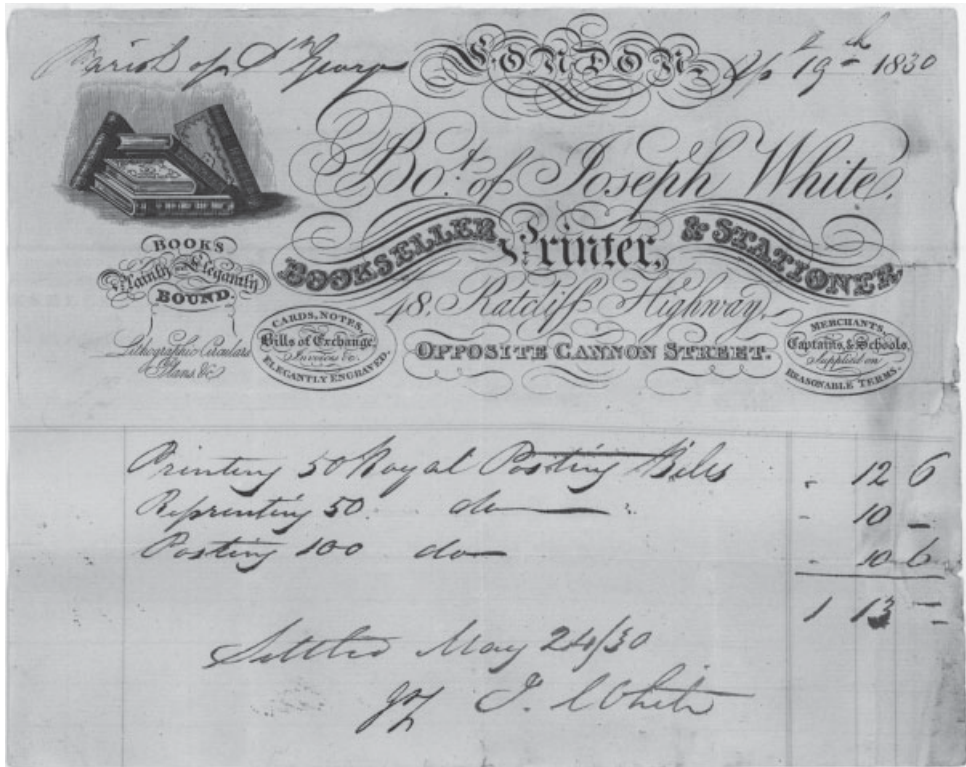 Parish of St George
LONDON, Ap 19th 1830
Bot. of Joseph White,
BOOKSELLER Printer, & STATIONER
48. Ratcliff Highway,
OPPOSITE CANNON STREET.
BOOKS
Plainly and Elegantly
BOUND.
Lithographic Circulars
Plans, &c
CARDS, NOTES,
Bills of Exchange,
Invoices &c.
ELEGANTLY ENGRAVED.
MERCHANTS,
Captains, & Schools,
Supplied on
REASONABLE TERMS.
Printing 50 Royal Posting Bills - 12 6
Reprinting 50 do - 10 -
Posting 100 do - 10 6
1 13 -
Settled May 24/30
J. White